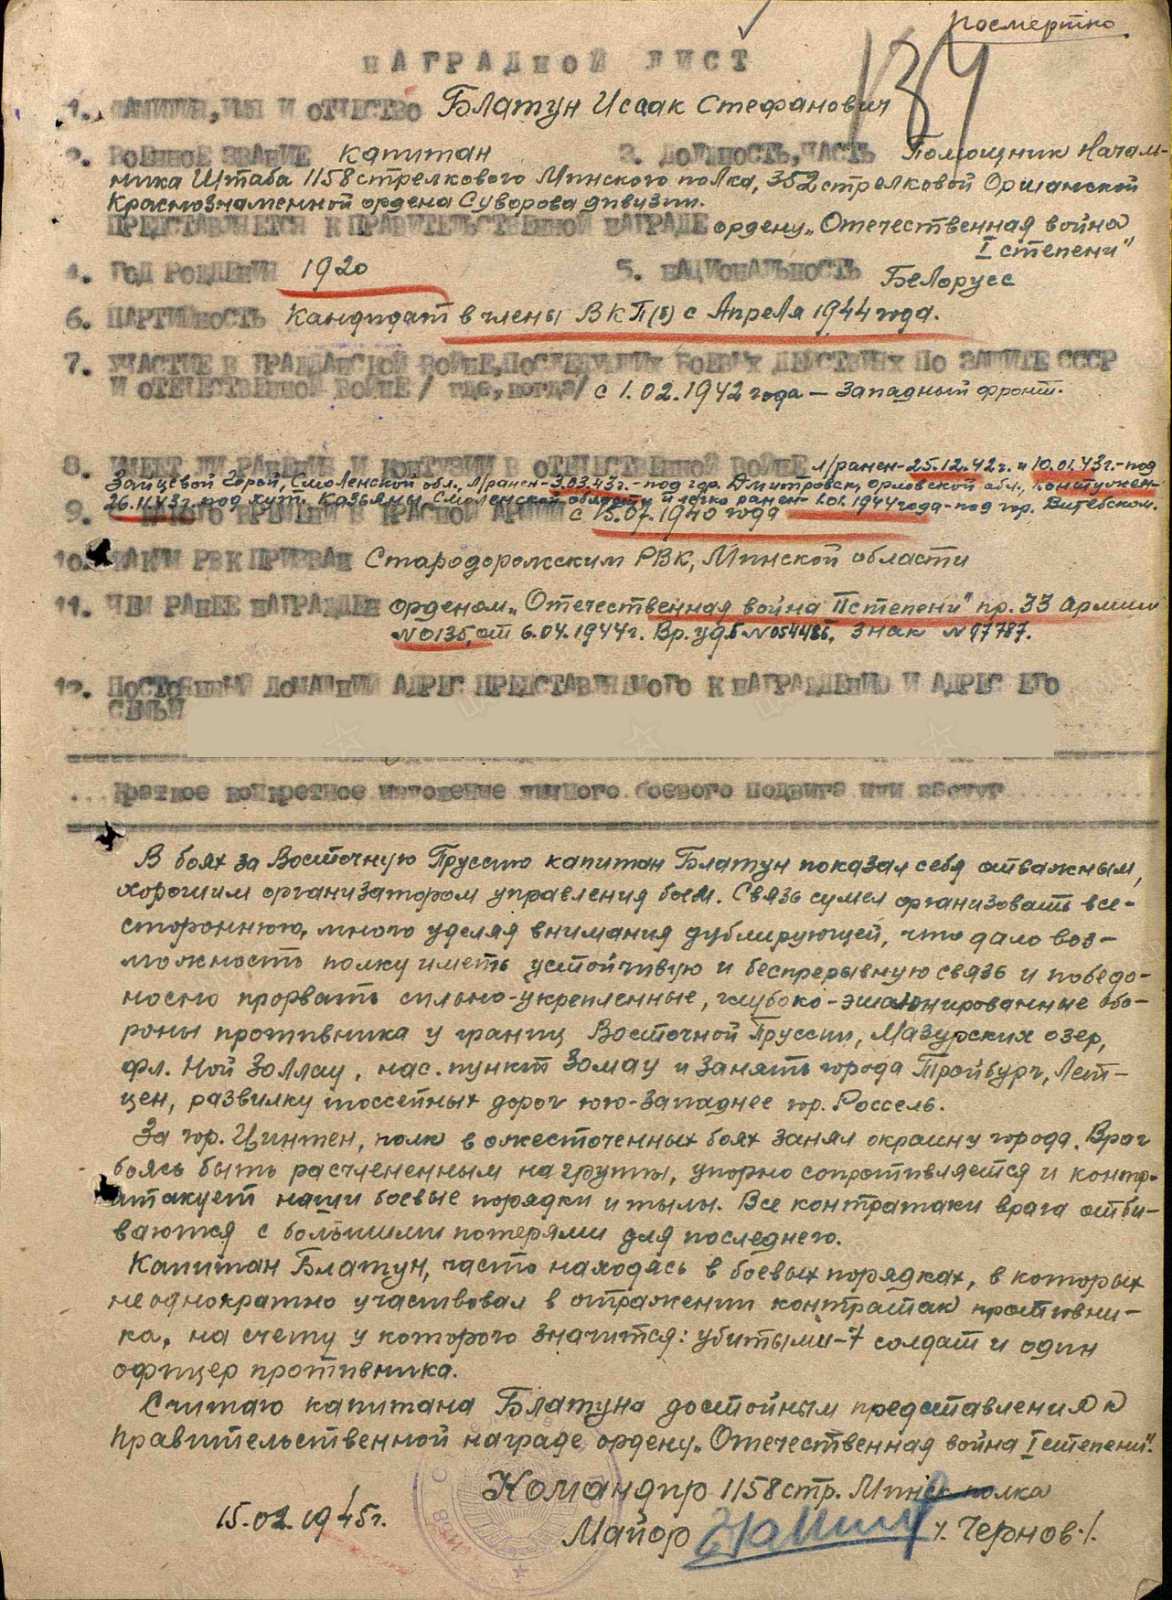 посмертно
134
НАГРАДНОЙ ЛИСТ
1. ФАМИЛИЯ, ИМЯ И ОТЧЕСТВО Блатун Иссак Стефанович
2. ВОЕННОЕ ЗВАНИЕ капитан 3. ДОЛЖНОСТЬ, ЧАСТЬ Помощник Началь-
ника Штаба 1158 стрелкового Минского полка, 352 стрелковой Оршанской
Краснознаменной ордена Суворова дивизии.
ПРЕДСТАВЛЯЕТСЯ К ПРАВИТЕЛЬСТВЕННОЙ НАГРАДЕ ордену „Отечественная война
I степени"
4. ГОД РОЖДЕНИЯ 1920 5. НАЦИОНАЛЬНОСТЬ Белорусс
6. ПАРТИЙНОСТЬ Кандидат в члены ВКП(б) с Апреля 1944 года.
7. УЧАСТИЕ В ГРАЖДАНСКОЙ ВОЙНЕ, ПОСЛЕДУЮЩИХ БОЕВЫХ ДЕЙСТВИЯХ ПО ЗАЩИТЕ СССР
И ОТЕЧЕСТВЕННОЙ ВОЙНЕ / где, когда/ с 1.02.1942 года – Западный фронт.
8. ИМЕЕТ ЛИ РАНЕНИЯ И КОНТУЗИИ В ОТЕЧЕСТВЕННОЙ ВОЙНЕ л/ранен-25.12.42г. и 10.01.43г.-под
Зайцевой Горой, Смоленской обл., л/ранен-3.03.43г.-под гор. Дмитровск, орловской обл., контужен-
26.11.43г. под хут. Казьяны, Смоленской области и легко ранен-1.01.1944 года-под гор. Витебском.
9. С КАКОГО ВРЕМЕНИ В КРАСНОЙ АРМИИ с 15.07.1940 года
10. КАКИМ РВК ПРИЗВАН Стародорожским РВК, Минской области
11. ЧЕМ РАНЕЕ НАГРАЖДЕН орденом „Отечественная война II степени" пр. 33 Армии
№0135, от 6.04.1944г. Вр. уд. Б №054486, знак №97787.
12. ПОСТОЯННЫЙ ДОМАШНИЙ АДРЕС ПРЕДСТАВЛЯЕМОГО К НАГРАЖДЕНИЮ И АДРЕС ЕГО
СЕМЬИ
Краткое конкретное изложение личного боевого подвига или заслуг
В боях за Восточную Пруссию капитан Блатун показал себя отважным,
хорошим организатором управления боем. Связь сумел организовать все-
стороннюю, много уделяя внимания дублирующей, что дало воз-
можность полку иметь устойчивую и беспрерывную связь и победо-
носно прорвать сильно-укрепленные, глубоко-эшалонированные обо-
роны противника у границ Восточной Пруссии, Мазурских озер,
фл. Ной Золлау, нас. пункт Зомау и занять города Тройбург, Лет-
цен, развилку шоссейных дорог юго-западнее гор. Россель.
За гор. Цинтен, полк в ожесточенных боях занял окраину города. Враг
боясь быть расчлененным на группы, упорно сопротивляется и контр-
атакует наши боевые порядки и тылы. Все контратаки врага отби-
ваются с большими потерями для последнего.
Капитан Блатун, часто находясь в боевых порядках, в которых
неоднократно участвовал в отражении контратак противни-
ка, на счету у которого значится: убитыми-7 солдат и один
офицер противника.
Считаю капитана Блатуна достойным представления к
правительственной награде ордену „Отечественная война I степени".
Командир 1158 стр. Минск полка
15.02.1945г. Майор /. Чернов./.